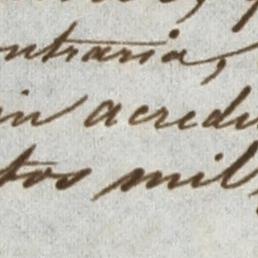 ontraria,
in acredi
tos mil